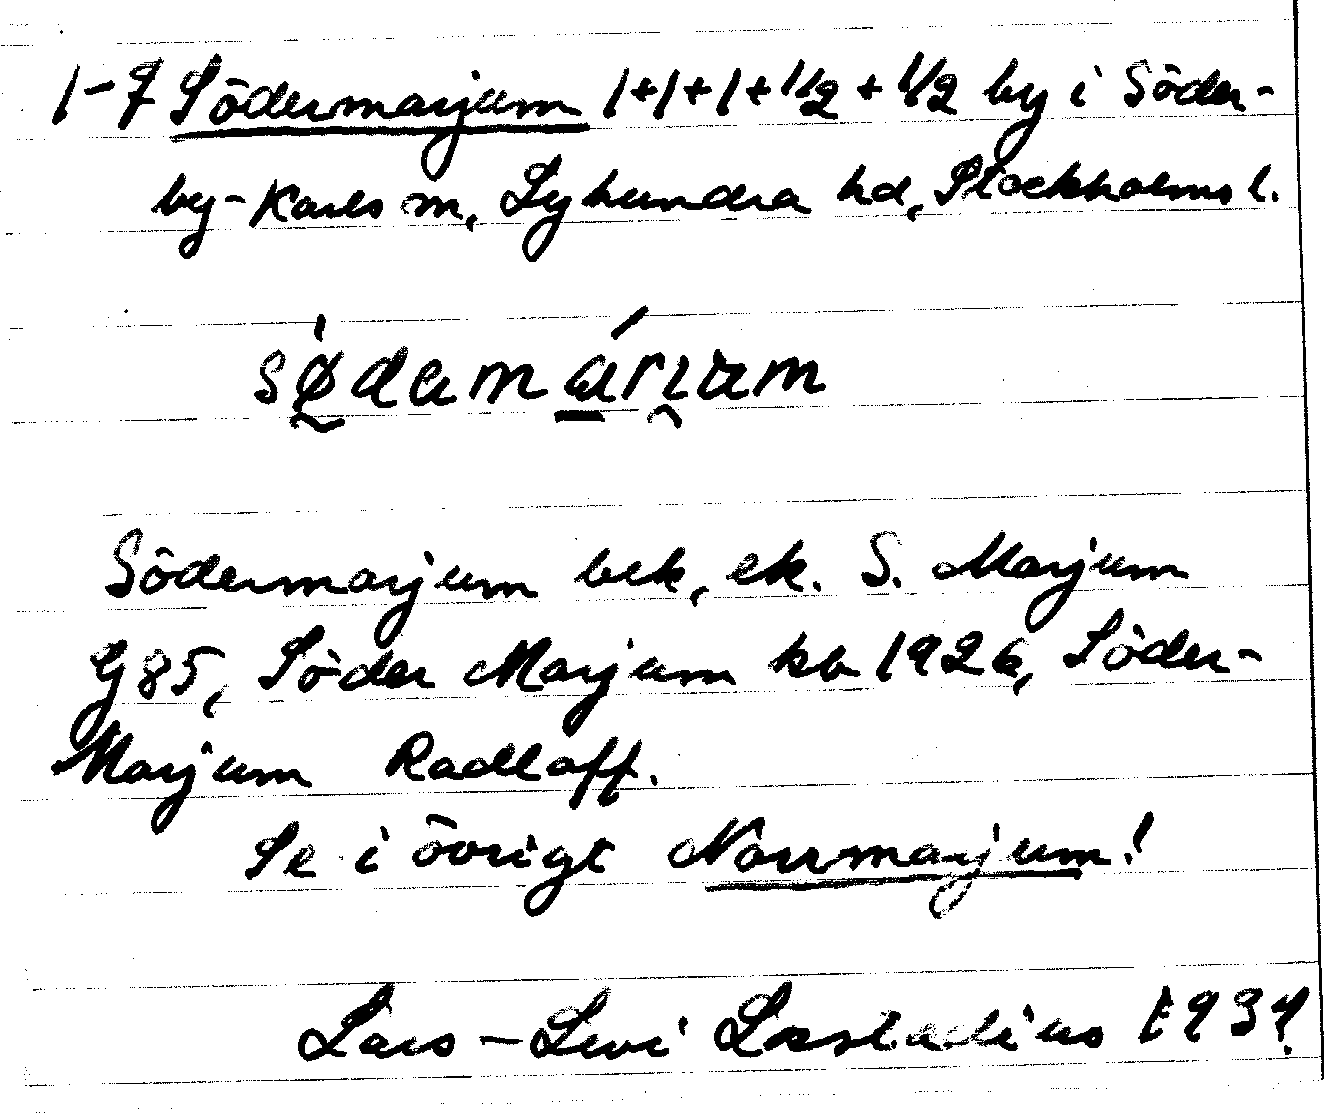 1-7 Södermarjum 1+1+1+1/2+1/2 by i Söder-
by-Karls sn, Lyhundra hd, Stockholms l.
Södermarjum bek, ek. S. Marjum
G 85, Söder Marjum kb 1926, Söder-
Marjum Radloff.
Se i övrigt Norrmarjum!
Lars-Levi Læstadius 1934.